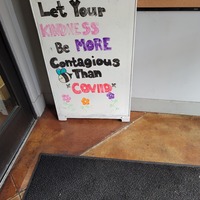 Let Your
KINDNESS
Be MORE
Contagious
Than
"COVID"